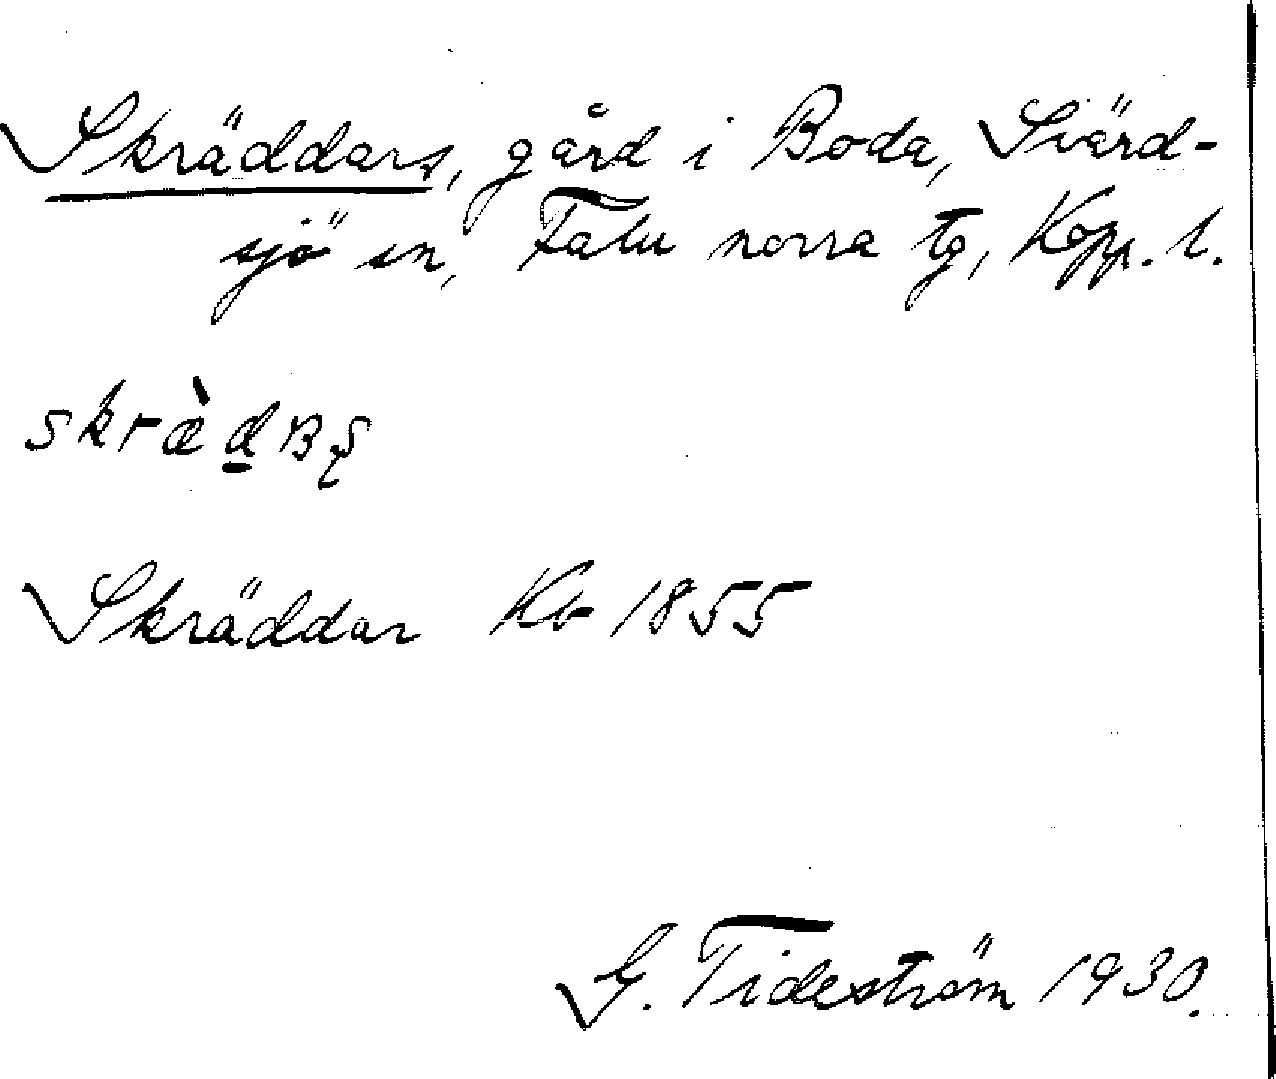 Skräddars, gård i Boda, Svärd-
sjö sn, Falu norra tg, Kopp. l.
skræ̀d̲ʙʂ
Skräddar Kb 1855
G. Tideström 1930.